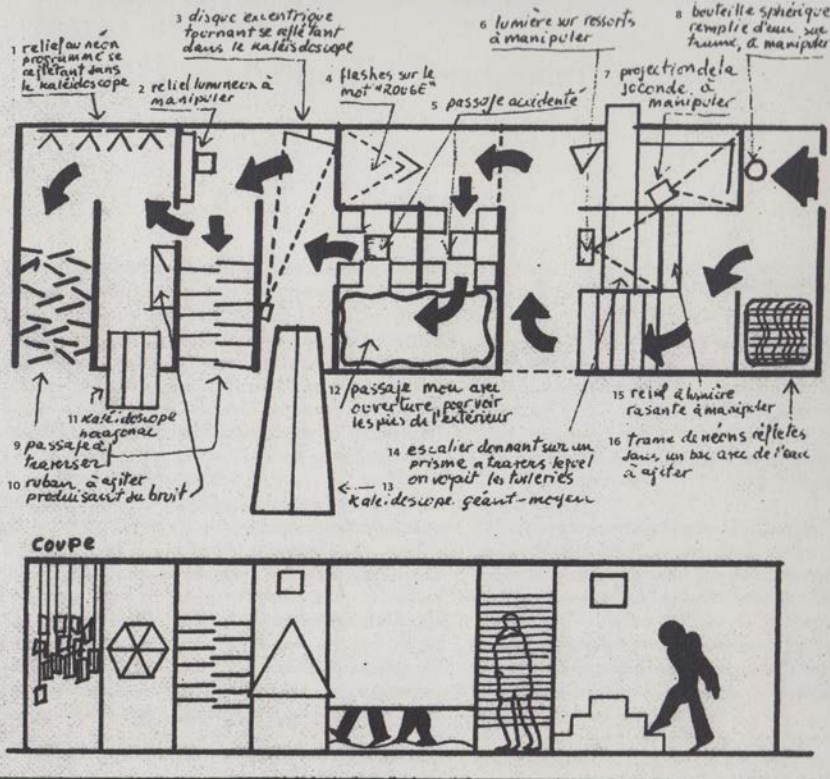 1 relief au néon
programmé se
reflétant dans
le kaléidoscope
2 relief lumineux à
manipuler
3 disque excentrique
tournant se reflétant
dans le kaléidoscope
4 flashes sur le
mot "ROUGE"
5 passage accidenté
6 lumière sur ressorts
à manipuler
7 projection de la
seconde à
manipuler
8 bouteille sphérique
remplie d'eau sur
trame, à manipuler
9 passage à
traverser
10 ruban à agiter
produisant du bruit
11 kaléidoscope
hexagonal
12 passage mou avec
ouverture pour voir
les pieds de l'extérieur
13
kaléidoscope géant-moyen
14 escalier donnant sur un
prisme à travers lequel
on voyait les tuileries
15 relief à lumière
rasante à manipuler
16 trame de néons reflétés
dans un bac avec de l'eau
à agiter
COUPE